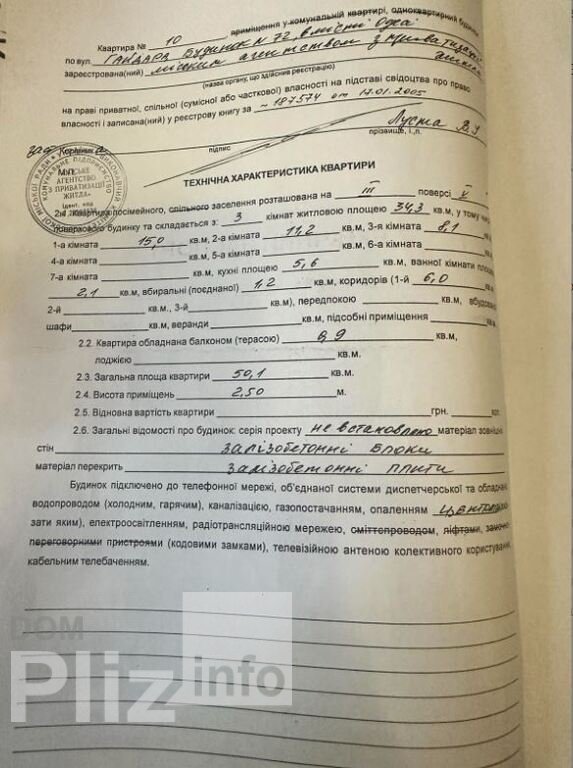 Квартира № 10 приміщення у комунальній квартирі, одноквартирний будинок
по вул. Гайдара будинок N 72, в місті Одесі
зареєстрований(ний) міським агентством з приватизації житла
(назва органу, що здійснив реєстрацію)
на праві приватної, спільної (сумісної або часткової) власності на підставі свідоцтва про право
власності і записана(ний) у реєстрову книгу за ~ 187574 от 17.01.2005
підпис прізвище, і.,п.
МІСЬКЕ
АГЕНТСТВО
ПРИВАТИЗАЦІЇ
ЖИТЛА
Ідент. код
ТЕХНІЧНА ХАРАКТЕРИСТИКА КВАРТИРИ
2.1. Квартира посімейного, спільного заселення розташована на III поверсі V
поверхового будинку та складається з: 3 кімнат житловою площею 34,3 кв.м, у тому числі
1-а кімната 15,0 кв.м, 2-а кімната 11,2 кв.м, 3-я кімната 8,1 кв.м
4-а кімната кв.м, 5-а кімната кв.м, 6-а кімната кв.м
7-а кімната кв.м, кухні площею 5,6 кв.м, ванної кімнати площ
2,1 кв.м, вбиральні (поєднаної) 1,2 кв.м, коридорів (1-й 6,0
2-й кв.м., 3-й кв.м), передпокою кв.м, вбудован
шафи кв.м, веранди кв.м, підсобні приміщення кв.м,
2.2. Квартира обладнана балконом (терасою) 0,9 кв.м,
лоджією кв.м.
2.3. Загальна площа квартири 50,1 кв.м.
2.4. Висота приміщень 2,50 м.
2.5. Відновна вартість квартири грн. коп.
2.6. Загальні відомості про будинок: серія проекту не встановлено матеріал зовнішніх
стін залізобетонні блоки
матеріал перекрить залізобетонні плити
Будинок підключено до телефонної мережі, об'єднаної системи диспетчерської та обладнан
водопроводом (холодним, гарячим), каналізацією, газопостачанням, опаленням
зати яким), електроосвітленням, радіотрансляційною мережею, сміттєпроводом, ліфтами, замочно
переговорними пристроями (кодовими замками), телевізійною антеною колективного користування,
кабельним телебаченням.
DOM
Pliz info